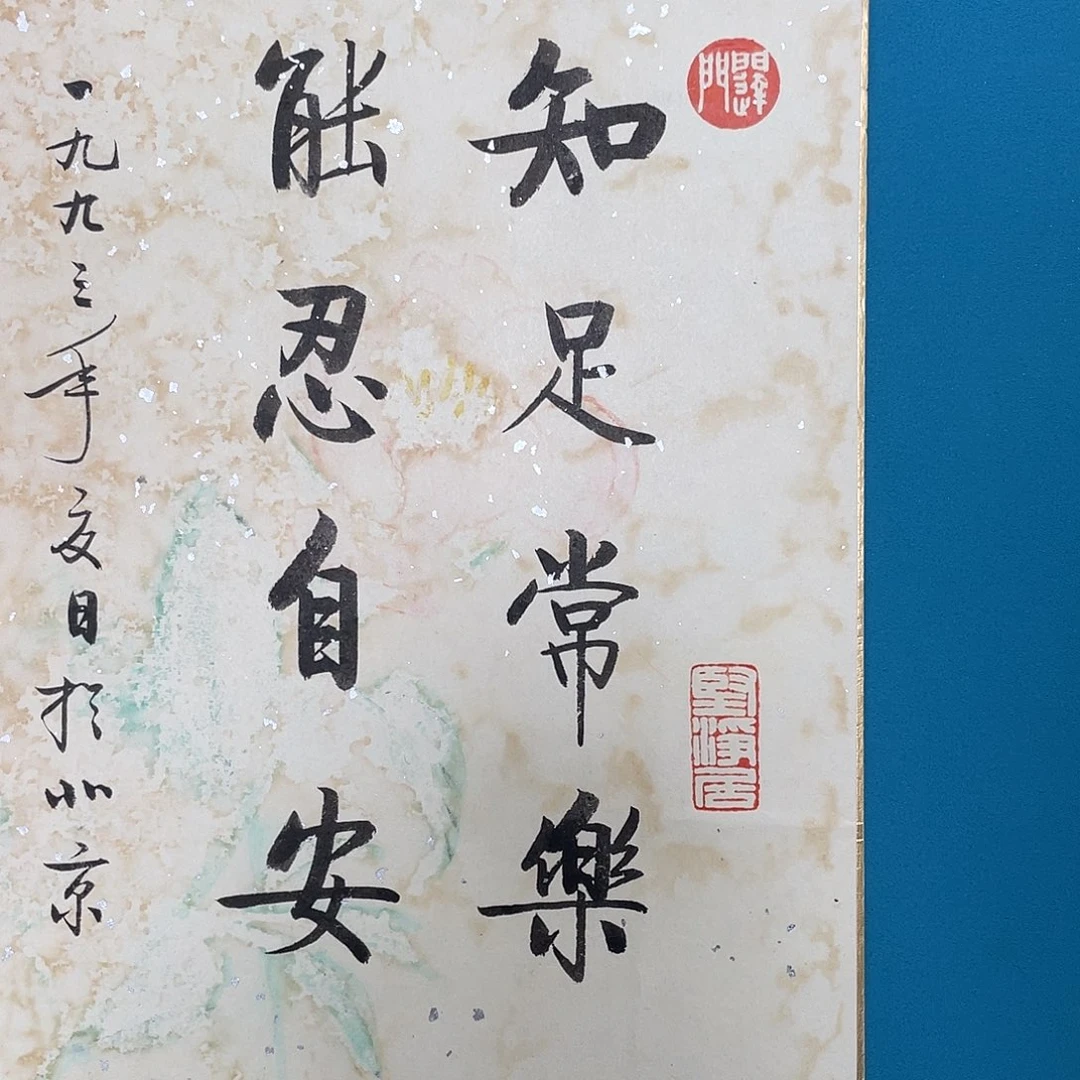 知足常樂
堅淨居
能忍自安
一九九三年夏日於北京